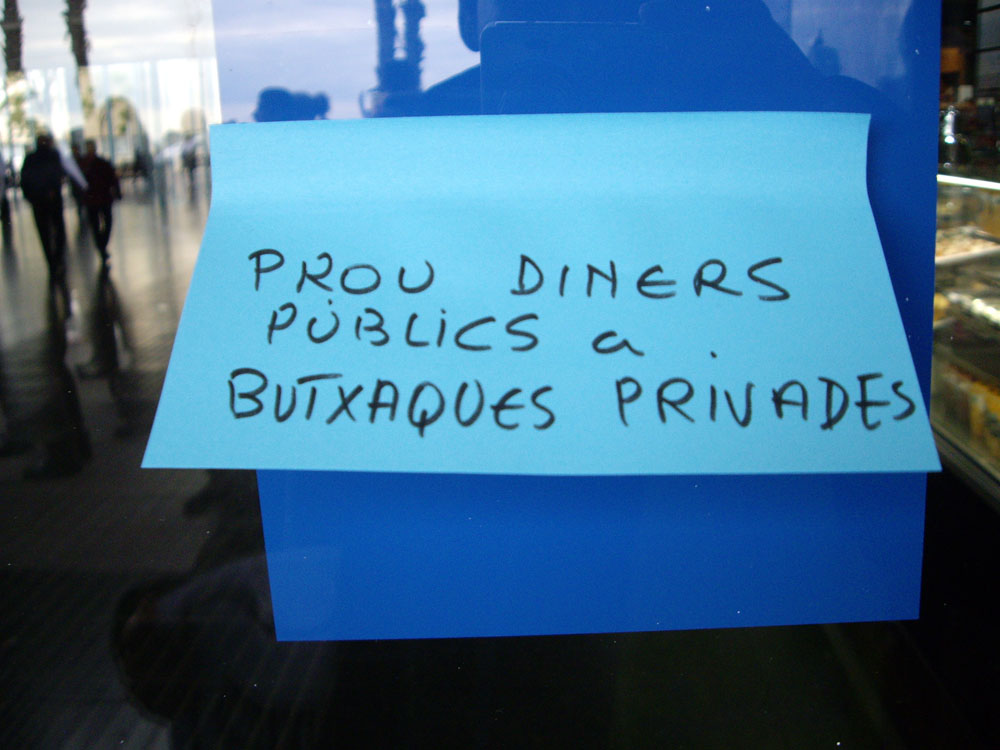 PROU DINERS
PÚBLiCS a
BUTXAQUES PRiVADES